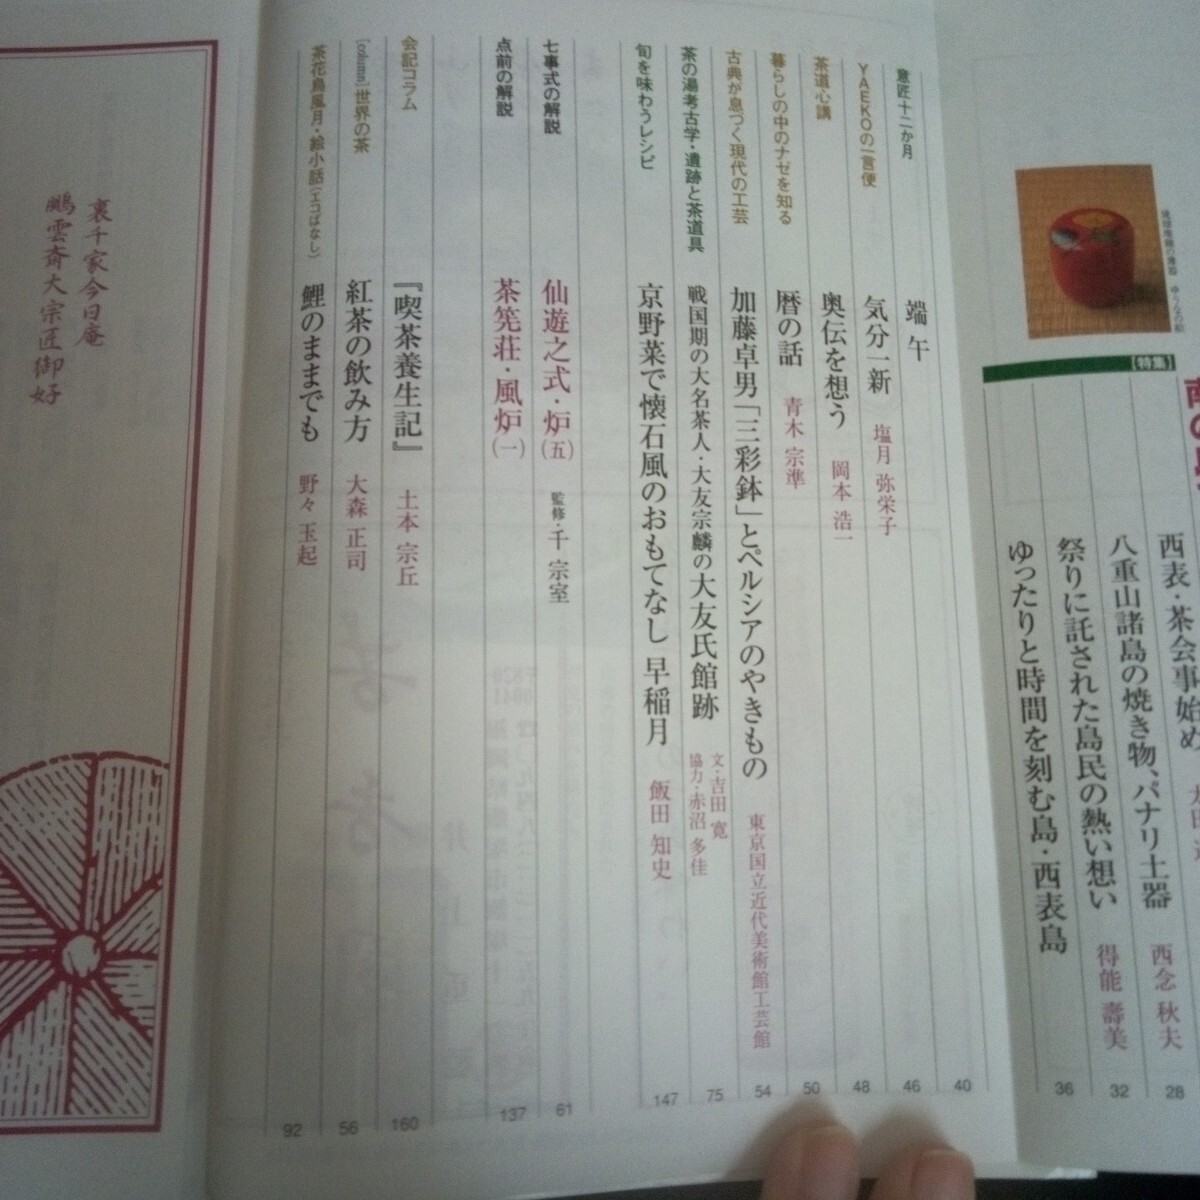 [特集]
西表・茶会事始め
八重山諸島の焼き物、パナリ土器 西念 秋夫 28
祭りに託された島民の熱い想い 得能 壽美 32
ゆったりと時間を刻む島・西表島 36
意匠十二か月 端午 40
YAEKOの一言便 気分一新 塩月 弥栄子 46
茶道心講 奥伝を想う 岡本 浩一 48
暮らしの中のナゼを知る 暦の話 青木 宗準 50
古典が息づく現代の工芸 加藤卓男「三彩鉢」とペルシアのやきもの 東京国立近代美術館工芸館 54
茶の湯考古学・遺跡と茶道具 戦国期の大名茶人・大友宗麟の大友氏館跡 文・吉田 寛 協力・赤沼 多佳 75
旬を味わうレシピ 京野菜で懐石風のおもてなし 早稲月 飯田 知史 147
七事式の解説 仙遊之式・炉(五) 監修・千 宗室 61
点前の解説 茶筅荘・風炉(一) 137
会記コラム 『喫茶養生記』 土本 宗丘 160
[column]世界の茶 紅茶の飲み方 大森 正司 56
茶花鳥風月・絵小話(エコばなし) 鯉のままでも 野々 玉起 92
裏千家今日庵
鵬雲斎大宗匠御好